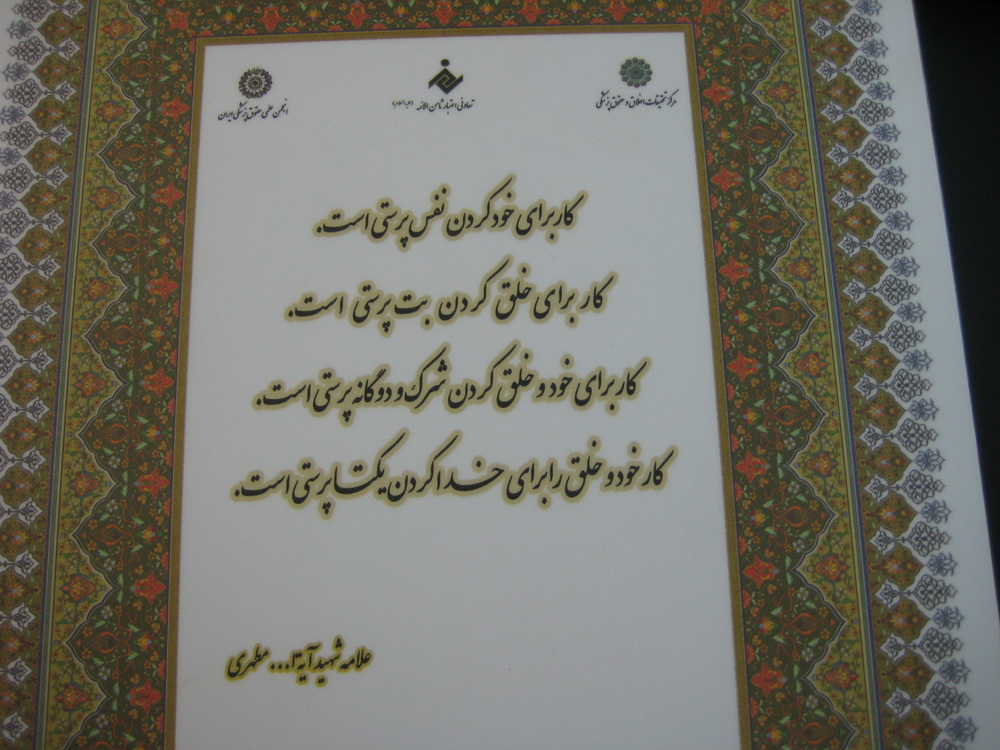 مرکز تحقیقات اخلاق و حقوق پزشکی
تعاونی اعتبار ثامن الائمه (علیه السلام)
انجمن علمی حقوق پزشکی ایران
کار برای خود کردن نفس پرستی است.
کار برای خلق کردن بت پرستی است.
کار برای خود و خلق کردن شرک و دوگانه پرستی است.
کار خود و خلق را برای خدا کردن یکتا پرستی است.
علامه شهید آیة ا... مطهری